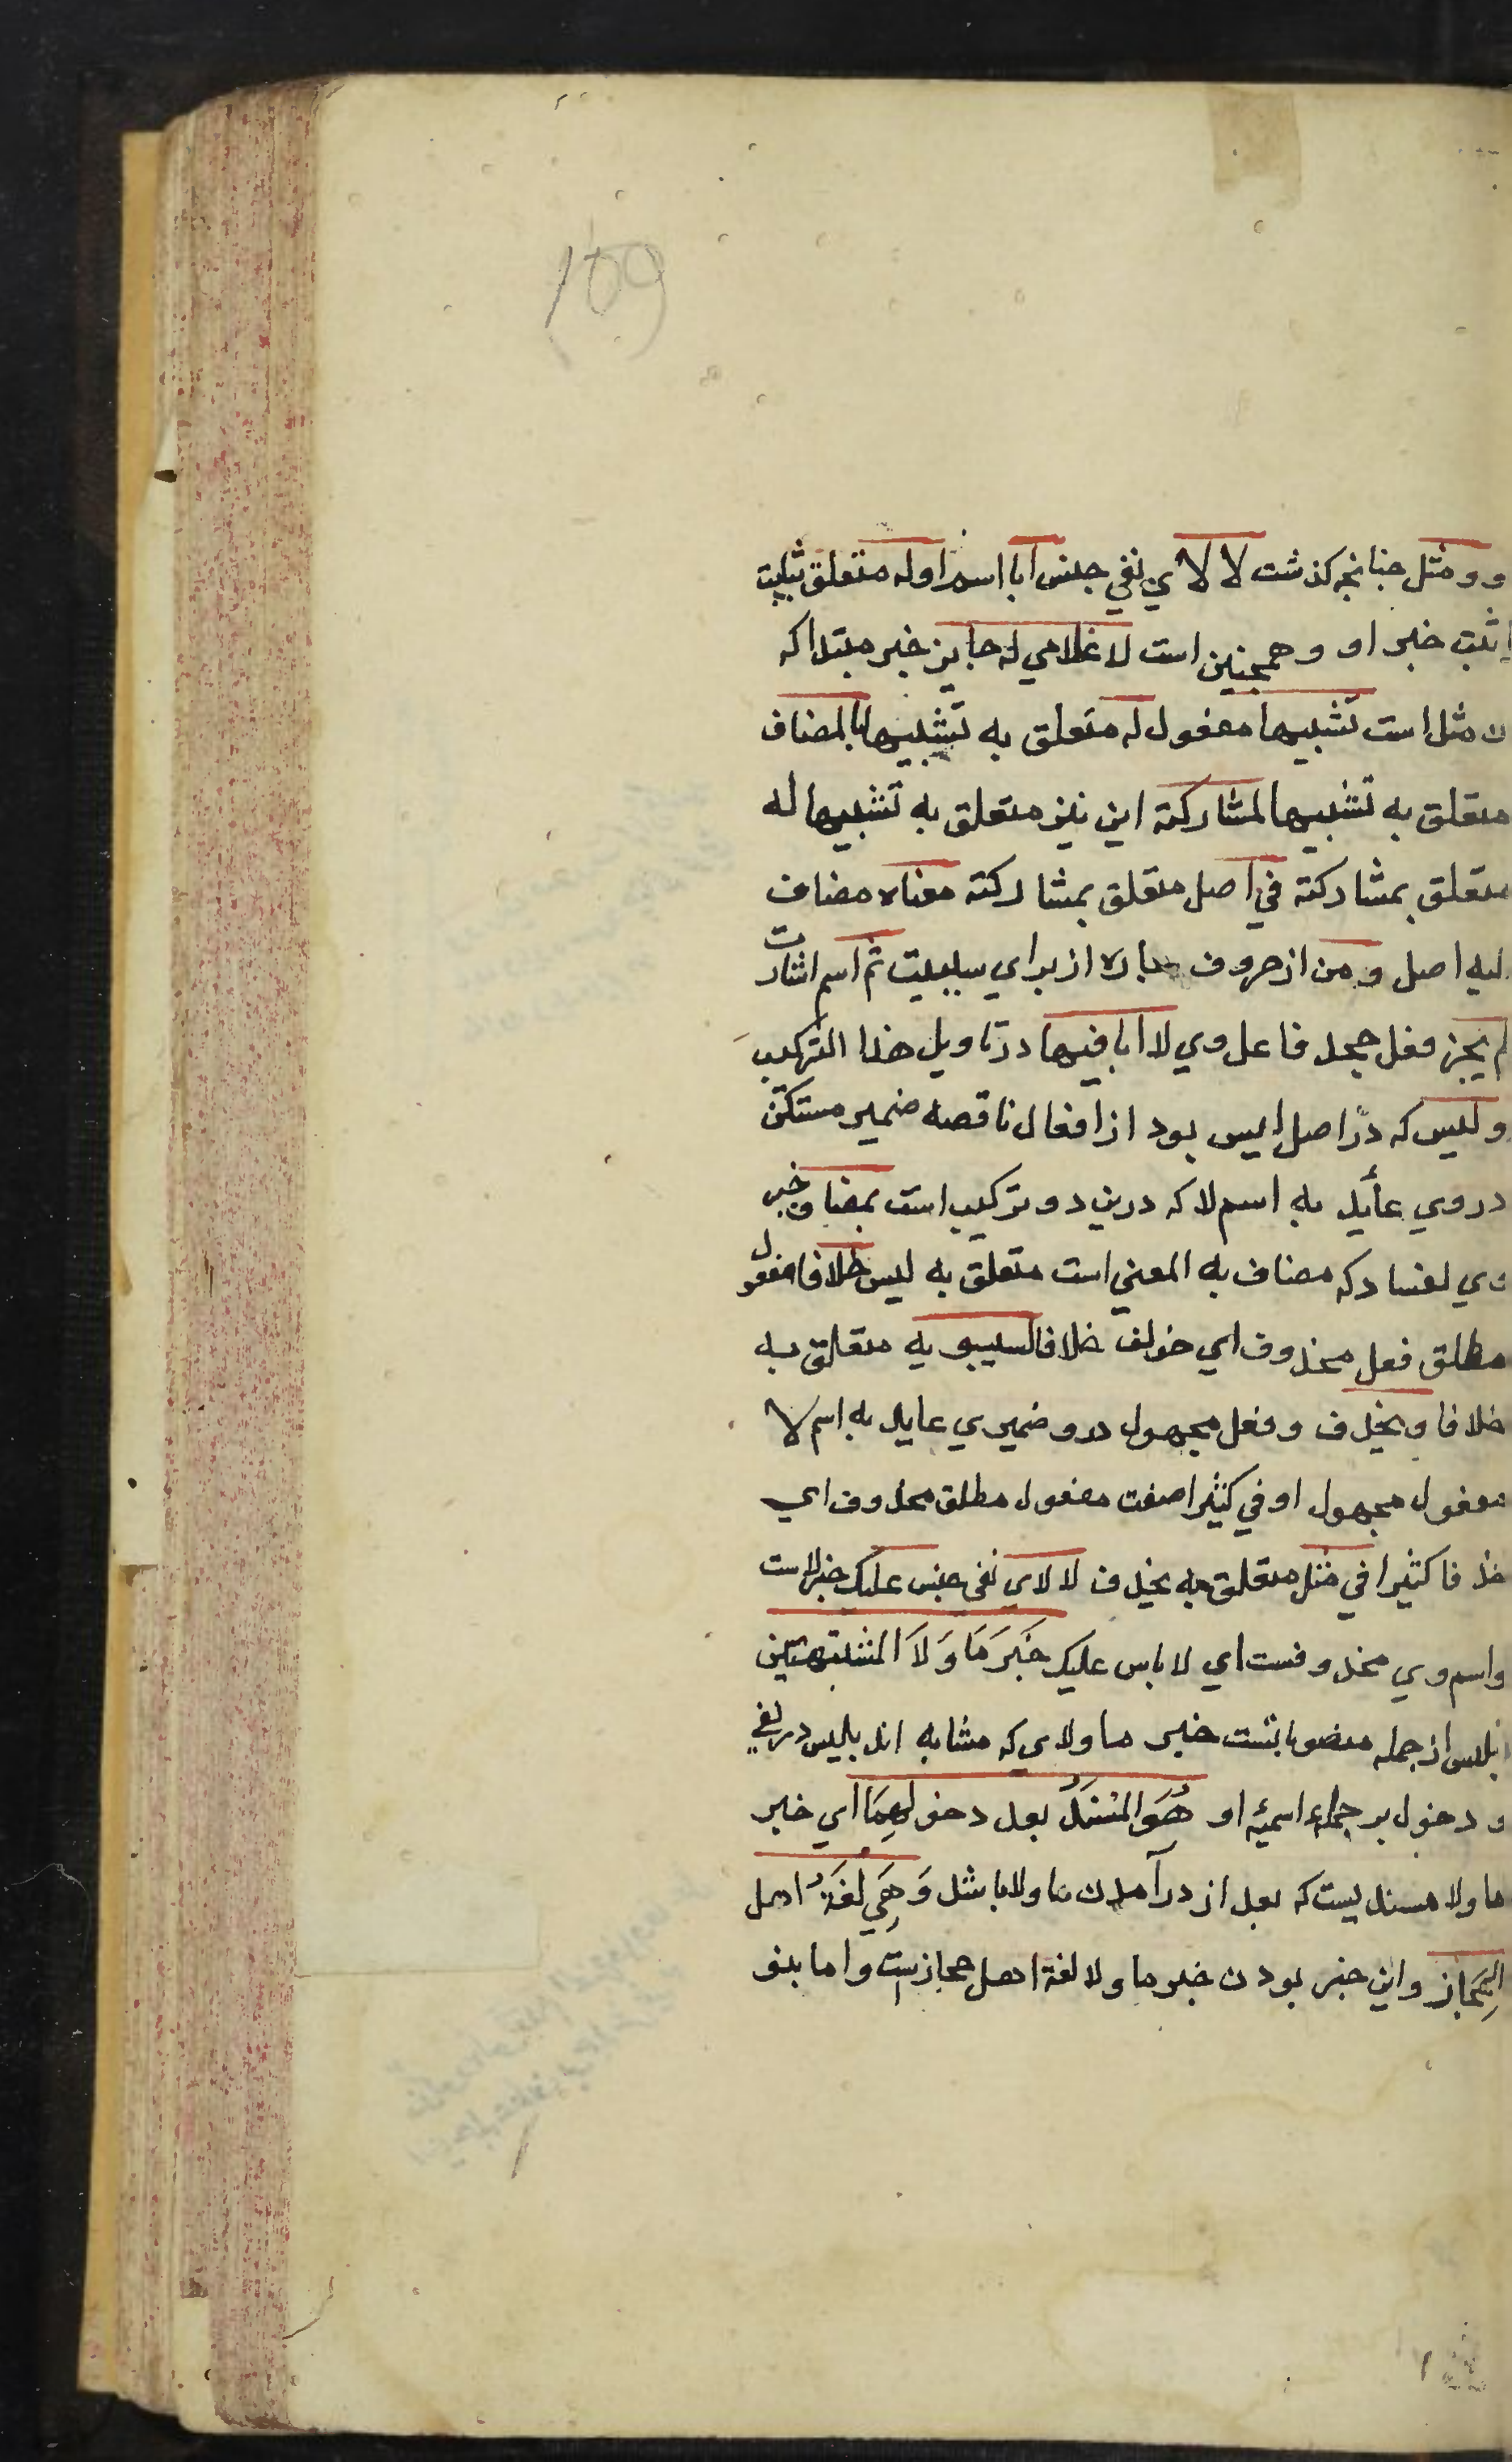 109
و و مثل چنانچه کذشت لا لاي نفي جنس ابا اسم او له متعلق ثبت
ثبت خبر او و همچنین است لا غلامي له جایز خبر مبتدا که
لا مثل است تشبیها مفعول له متعلق به تشبیها بالمضاف
متعلق به تشبیها لمشارکته این نیز متعلق به تشبیها له
متعلق بمشارکته في اصل متعلق بمشارکته معناه مضاف
لیه اصل و من از حروف جاره از براي سببیت ثم اسم اشارت
لم یجز فعل جحد فاعل وي لا ابا فیها در تاویل هذا الترکیب
و لیس که در اصل الیس بود از افعال ناقصه ضمیر مستکن
در وي عاید به اسم لا که درین دو ترکیب است بمضاف خبر
وي لفساد که مضاف به المعني است متعلق به لیس خلافا مفعول
مطلق فعل محذوف اي خولف خلافا لسیبویه متعلق به
خلافا و یحذف و فعل مجهول درو ضمیري عاید به اسم لا
مفعول مجهول او في کثیرا صفت مفعول مطلق محذوف اي
حذفا کثیرا في مثل متعلق به یحذف لا لاي نفي جنس علیک خبر لاست
واسم وي محذوفست اي لا باس علیک خَبَرَ مَا وَلَا المشبهتین
بلیس از جمله منصوباتست خبر ما ولاي که مشابه اند بلیس در نفي
و دخول بر جملهء اسمیه او هُوَ المُسْنَدُ بعد دخولهِمَا اي خبر
ما ولا مسندیست که بعد از درآمدن ما ولا باشد وَهِيَ لُغَةُ اهل
الحِجَاز و این خبر بودن خبر ما ولا لغة اهل حجازست و اما بنو